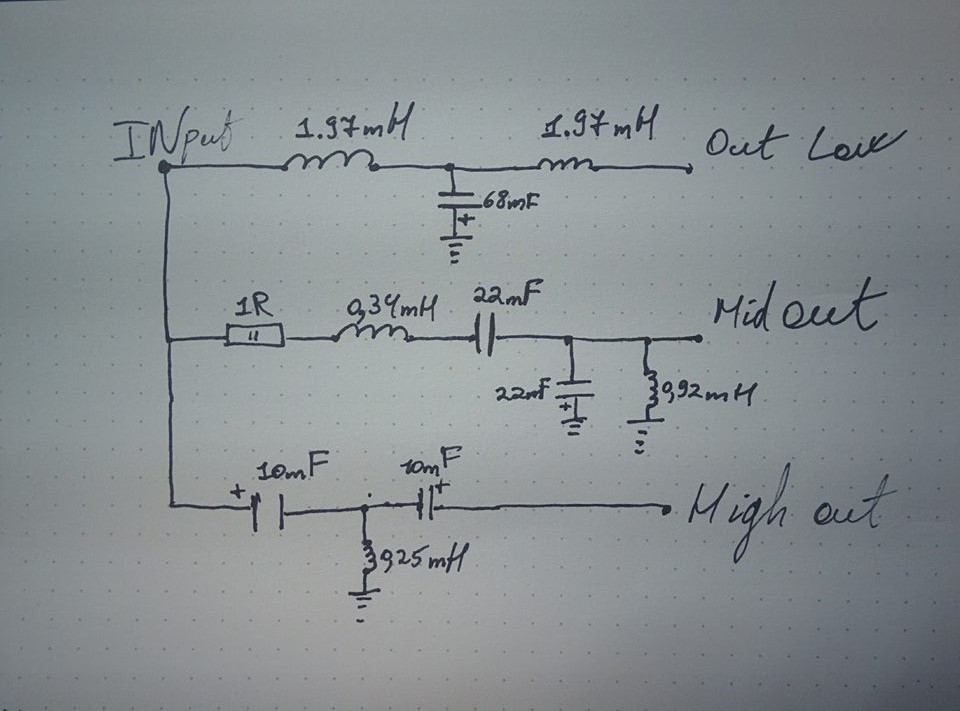 INput
1.97mH
1.97mH
Out Low
68mF
+
1R
0,34mH
22mF
Mid out
22mF
+
0,92mH
+
10mF
10mF
+
High out
0,25mH